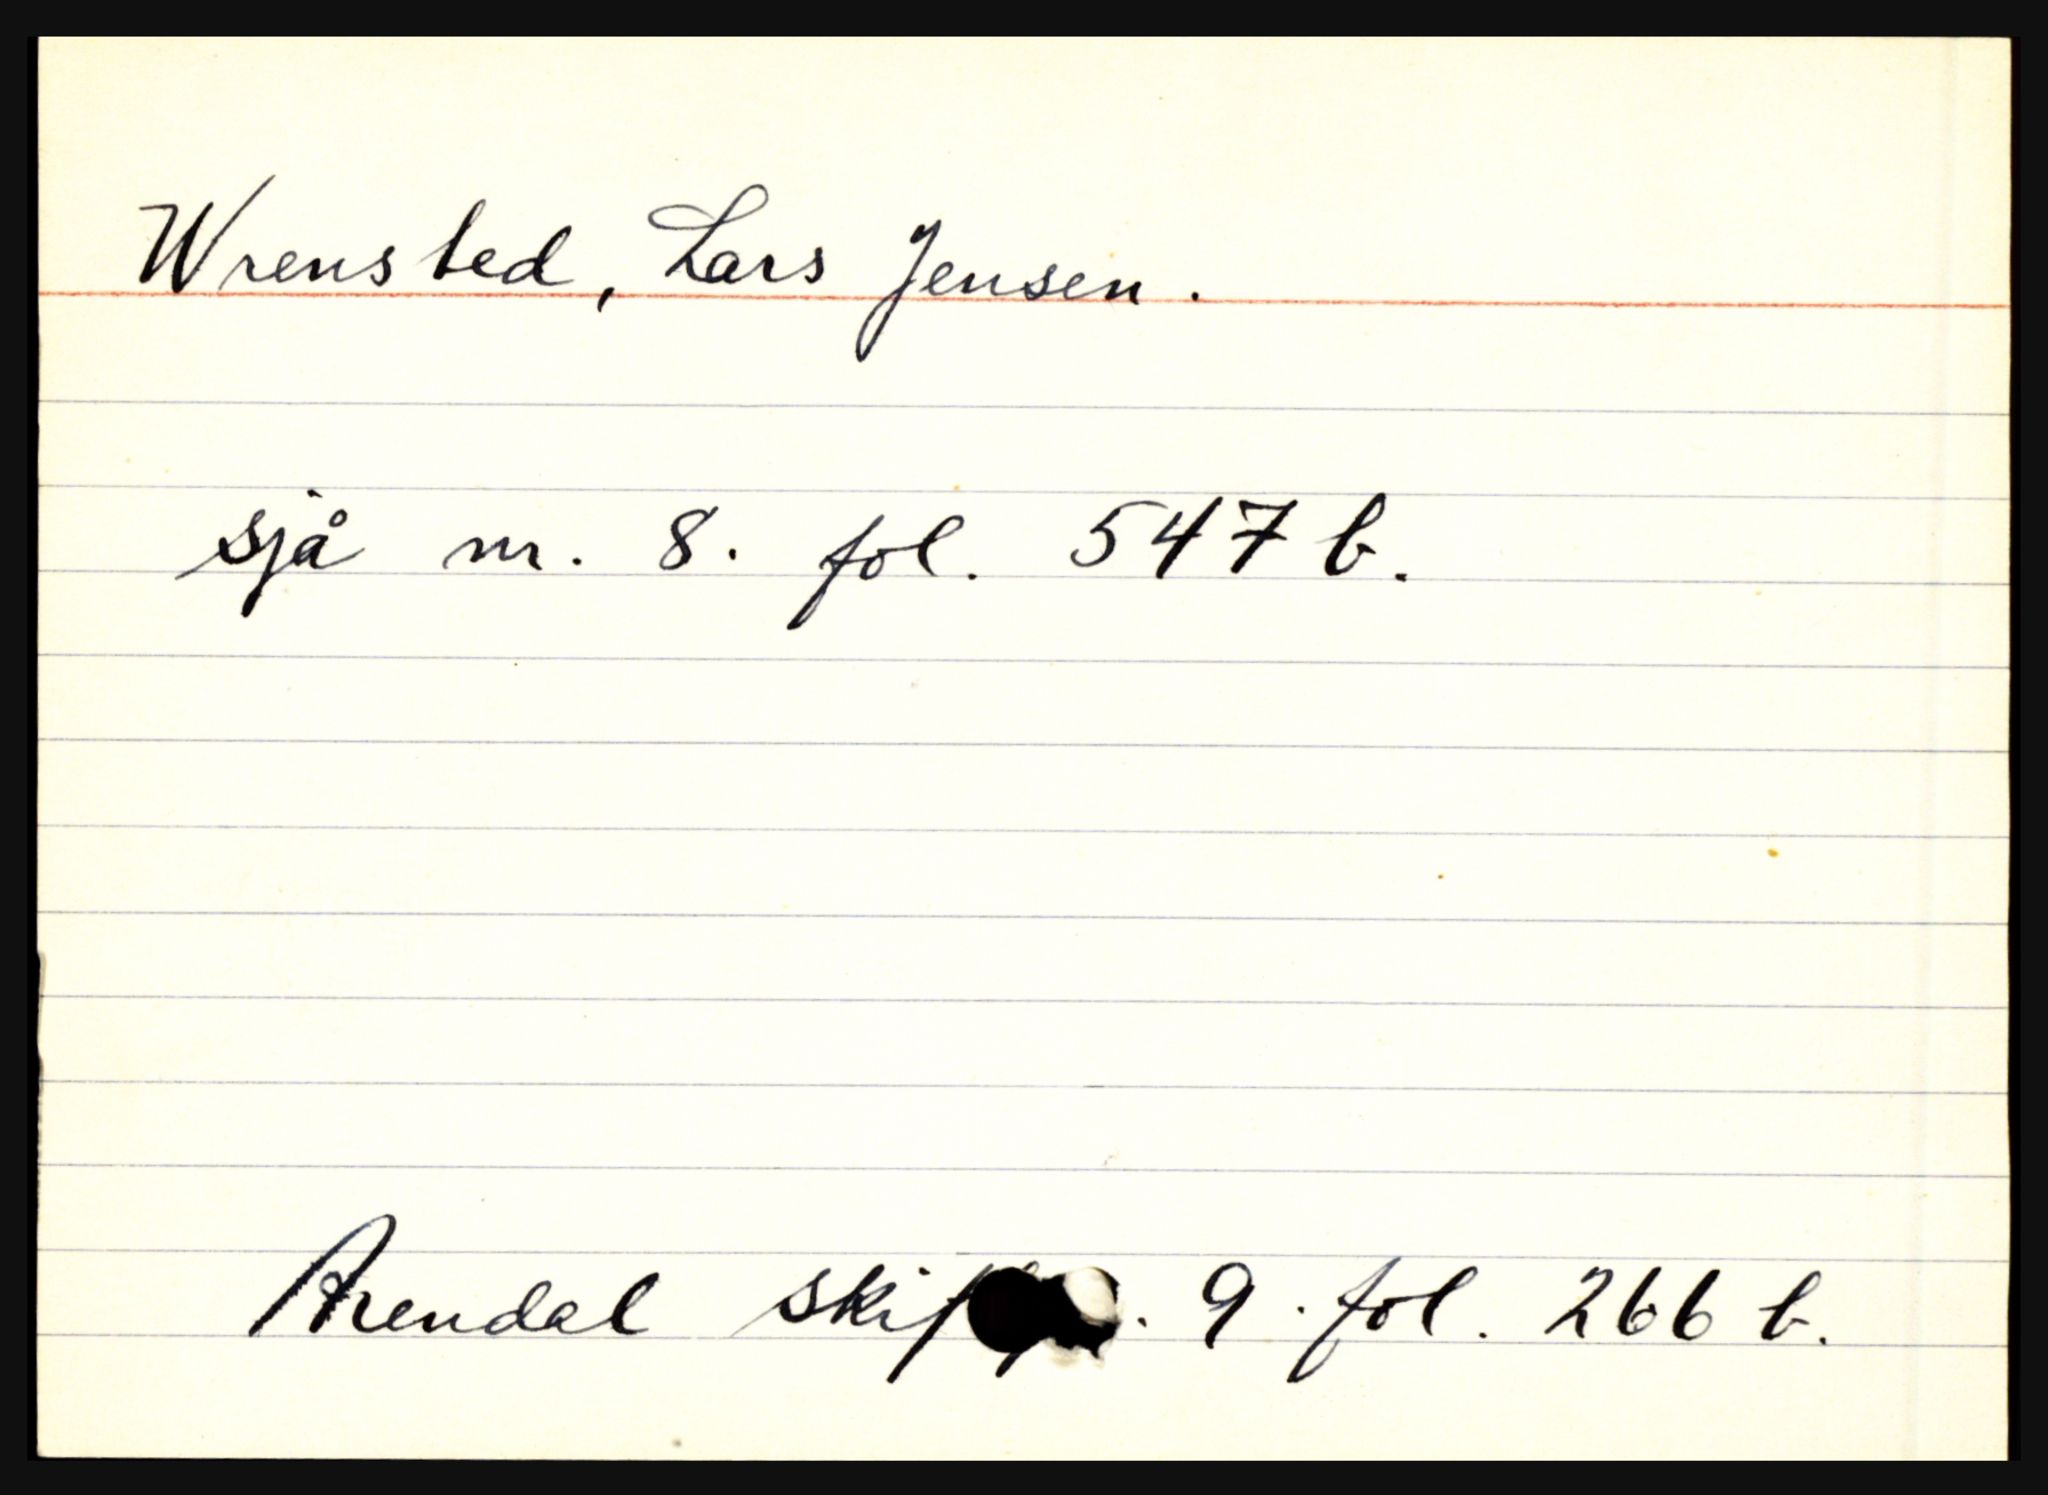 Wrensted, Lars Jensen.
sjå nr. 8. fol. 547 b.
Arendal 9. fol. 266 b.